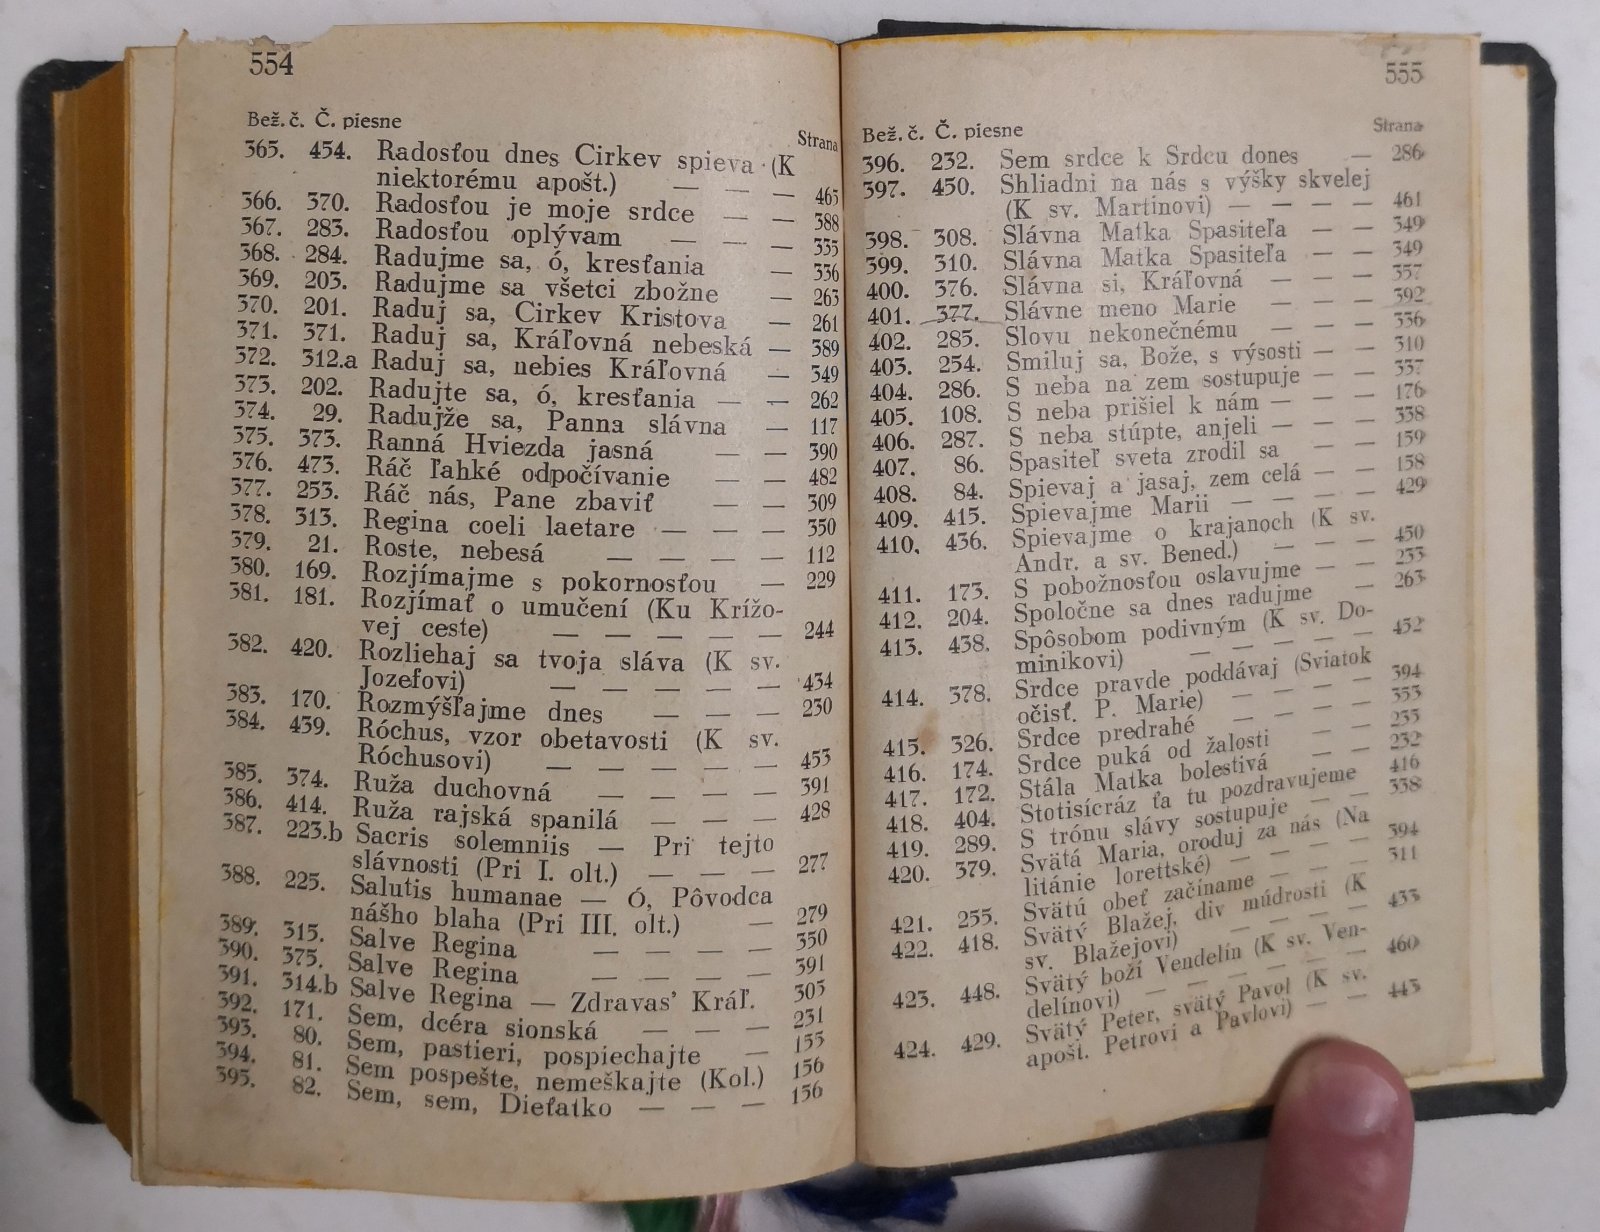 554
Bež. č. Č. piesne
Strana
365. 454. Radosťou dnes Cirkev spieva (K
niektorému apošt.) — — — 465
366. 370. Radosťou je moje srdce — — 388
367. 283. Radosťou oplývam — — — 335
368. 284. Radujme sa, ó, kresťania — 336
369. 203. Radujme sa všetci zbožne — 263
370. 201. Raduj sa, Cirkev Kristova — 261
371. 371. Raduj sa, Kráľovná nebeská — 389
372. 312.a Raduj sa, nebies Kráľovná — 349
373. 202. Radujte sa, ó, kresťania — — 262
374. 29. Radujže sa, Panna slávna — 117
375. 373. Ranná Hviezda jasná — — 390
376. 473. Ráč ľahké odpočívanie — — 482
377. 253. Ráč nás, Pane zbaviť — — 309
378. 313. Regina coeli laetare — — — 350
379. 21. Roste, nebesá — — — — 112
380. 169. Rozjímajme s pokornosťou — 229
381. 181. Rozjímať o umučení (Ku Krížo-
vej ceste) — — — — — 244
382. 420. Rozliehaj sa tvoja sláva (K sv.
Jozefovi) — — — — — 434
383. 170. Rozmýšľajme dnes — — — 230
384. 439. Róchus, vzor obetavosti (K sv.
Róchusovi) — — — — — 453
385. 374. Ruža duchovná — — — — 391
386. 414. Ruža rajská spanilá — — — 428
387. 223.b Sacris solemniis — Pri tejto
slávnosti (Pri I. olt.) — — — 277
388. 225. Salutis humanae — Ó, Pôvodca
nášho blaha (Pri III. olt.) — 279
389. 315. Salve Regina — — — — 350
390. 375. Salve Regina — — — — 391
391. 314.b Salve Regina — Zdravas' Kráľ. 305
392. 171. Sem, dcéra sionská — — — 231
393. 80. Sem, pastieri, pospiechajte — 155
394. 81. Sem pospešte, nemeškajte (Kol.) 156
395. 82. Sem, sem, Dieťatko — — — 156
555
Bež. č. Č. piesne
Strana
396. 232. Sem srdce k Srdcu dones — 286
397. 450. Shliadni na nás s výšky skvelej
(K sv. Martinovi) — — — — 461
398. 308. Slávna Matka Spasiteľa — — 349
399. 310. Slávna Matka Spasiteľa — — 349
400. 376. Slávna si, Kráľovná — — — 357
401. 377. Slávne meno Marie — — — 392
402. 285. Slovu nekonečnému — — — 336
403. 254. Smiluj sa, Bože, s výsosti — — 310
404. 286. S neba na zem sostupuje — — 337
405. 108. S neba prišiel k nám — — — 176
406. 287. S neba stúpte, anjeli — — — 338
407. 86. Spasiteľ sveta zrodil sa — — 159
408. 84. Spievaj a jasaj, zem celá — — 158
409. 415. Spievajme Marii — — — — 429
410. 436. Spievajme o krajanoch (K sv.
Andr. a sv. Bened.) — — — 450
411. 173. S pobožnosťou oslavujme — — 233
412. 204. Spoločne sa dnes radujme — 263
413. 438. Spôsobom podivným (K sv. Do-
minikovi) — — — — 452
414. 378. Srdce pravde poddávaj (Sviatok
očisť. P. Marie) — — — — 394
415. 326. Srdce predrahé — — — — 353
416. 174. Srdce puká od žalosti — — 235
417. 172. Stála Matka bolestivá — — 232
418. 404. Stotisícráz ťa tu pozdravujeme 416
419. 289. S trónu slávy sostupuje — — 338
420. 379. Svätá Maria, oroduj za nás (Na
litánie lorettské) — — — — 394
421. 255. Svätú obeť začíname — — — 311
422. 418. Svätý Blažej, div múdrosti (K
sv. Blažejovi) — — — — 433
423. 448. Svätý boží Vendelín (K sv. Ven-
delínovi) — — — — — 460
424. 429. Svätý Peter, svätý Pavol (K sv.
apošt. Petrovi a Pavlovi) — — 443